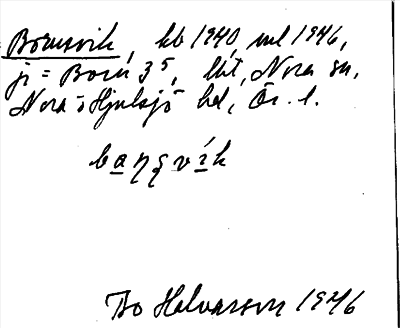 Bornsvik, kb 1940, ml 1946,
ji = Born 3⁵, lht, Nora sn,
Nora o Hjulsjö hd, Ör. l.
Bo Halvarson 1946